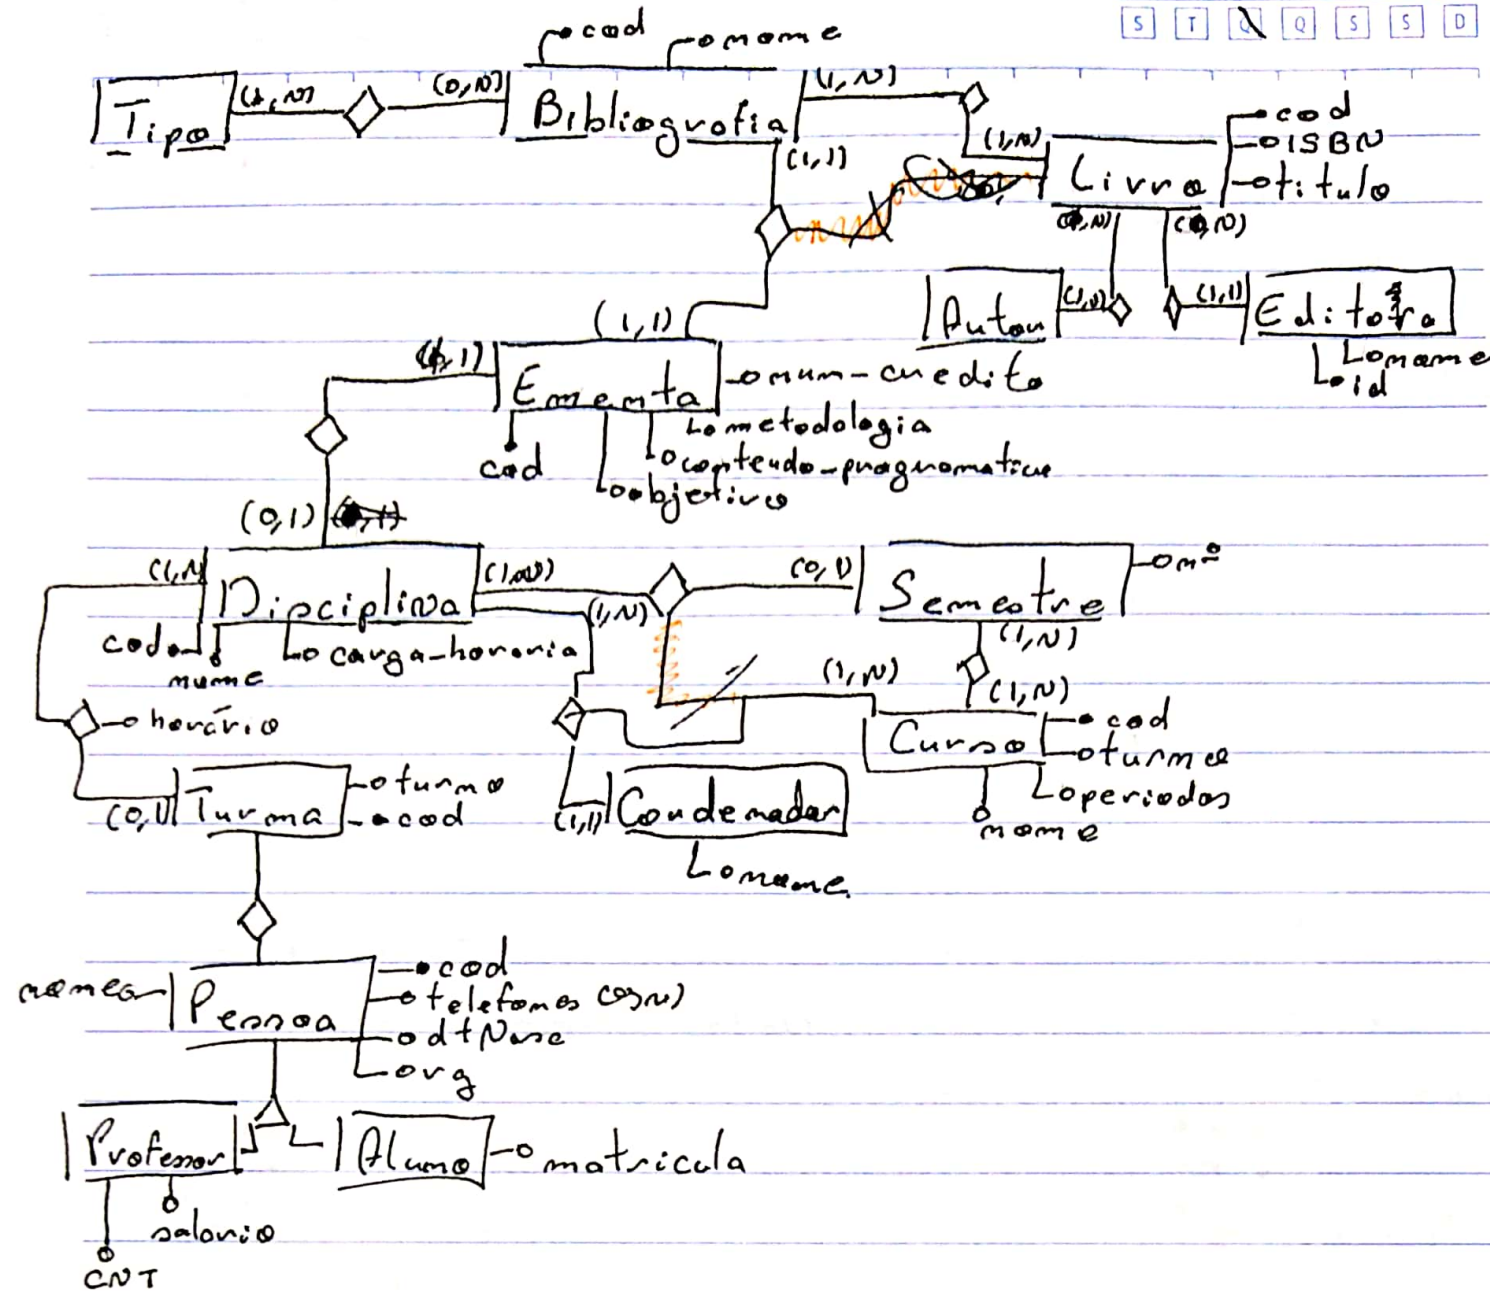 S T Q Q S S D
cod
nome
Tipo (1,N) (0,N) Bibliografia (1,N)
(1,1)
(1,N) Livro
cod
ISBN
titulo
(0,N) (0,N)
Autor (1,N) (1,1) Editora
nome
id
(1,1)
(1,1) Ementa
num-credito
metodologia
conteudo-programatico
objetivo
cod
(0,1)
(1,N) Disciplina (1,N) (0,1) Semestre nº
(1,N)
cod
nome
carga-horaria
(1,N)
(1,N)
(1,N)
Curso
cod
turma
periodos
nome
horário
(0,1) Turma
turno
cod
(1,1) Cordenador
nome
nome Pessoa
cod
telefones (0,N)
dtNasc
rg
Professor Aluno matricula
salario
CNT